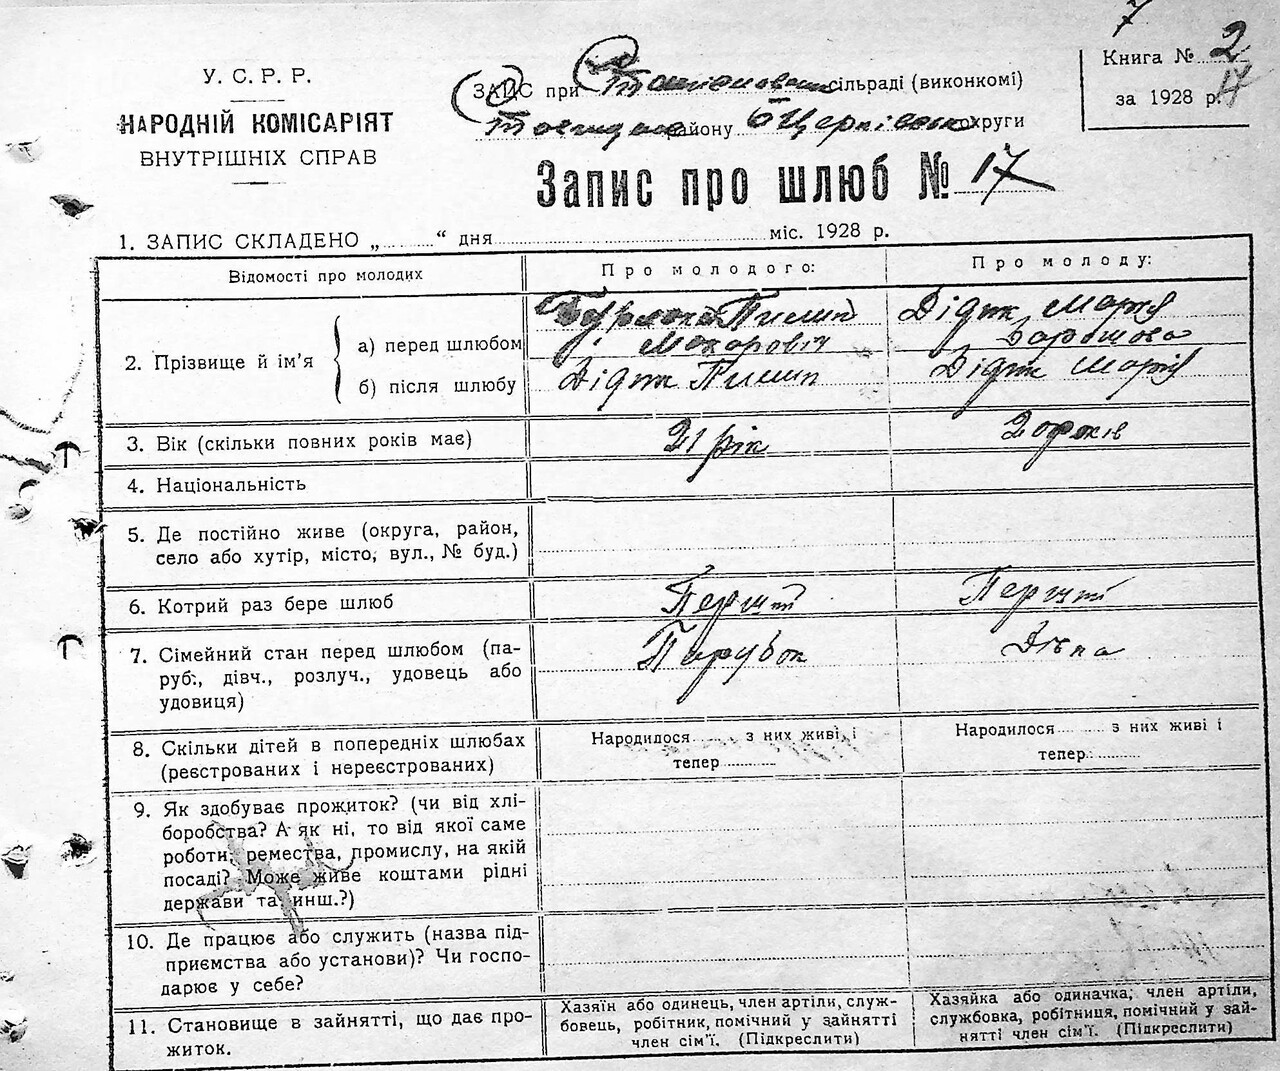 7
У. С. Р. Р.
НАРОДНІЙ КОМІСАРІЯТ
ВНУТРІШНІХ СПРАВ
ЗАПИС при сільраді (виконкомі)
району Б Церківської округи
Книга № 2
за 1928 р.
Запис про шлюб № 17
1. ЗАПИС СКЛАДЕНО „ “ дня міс. 1928 р.
Відомості про молодих
Про молодого:
Про молоду:
2. Прізвище й ім’я
а) перед шлюбом
Пилип
Макарович
Дідик Марія
б) після шлюбу
Дідик Пилип
Дідик Марія
3. Вік (скільки повних років має)
21 рік
20 років
4. Національність
5. Де постійно живе (округа, район,
село або хутір, місто, вул., № буд.)
6. Котрий раз бере шлюб
Перший
Перший
7. Сімейний стан перед шлюбом (па-
руб., дівч., розлуч., удовець або
удовиця)
Парубок
Дівка
8. Скільки дітей в попередніх шлюбах
(реєстрованих і нереєстрованих)
Народилося з них живі і
тепер
Народилося з них живі і
тепер
9. Як здобуває прожиток? (чи від хлі-
боробства? А як ні, то від якої саме
роботи, ремества, промислу, на якій
посаді? Може живе коштами рідні
держави та инш.?)
10. Де працює або служить (назва під-
приємства або установи)? Чи госпо-
дарює у себе?
11. Становище в зайнятті, що дає про-
житок.
Хазяїн або одинець, член артіли, служ-
бовець, робітник, помічний у зайнятті
член сім’ї. (Підкреслити)
Хазяйка або одиначка, член артіли,
службовка, робітниця, помічний у зай-
нятті член сім’ї. (Підкреслити)